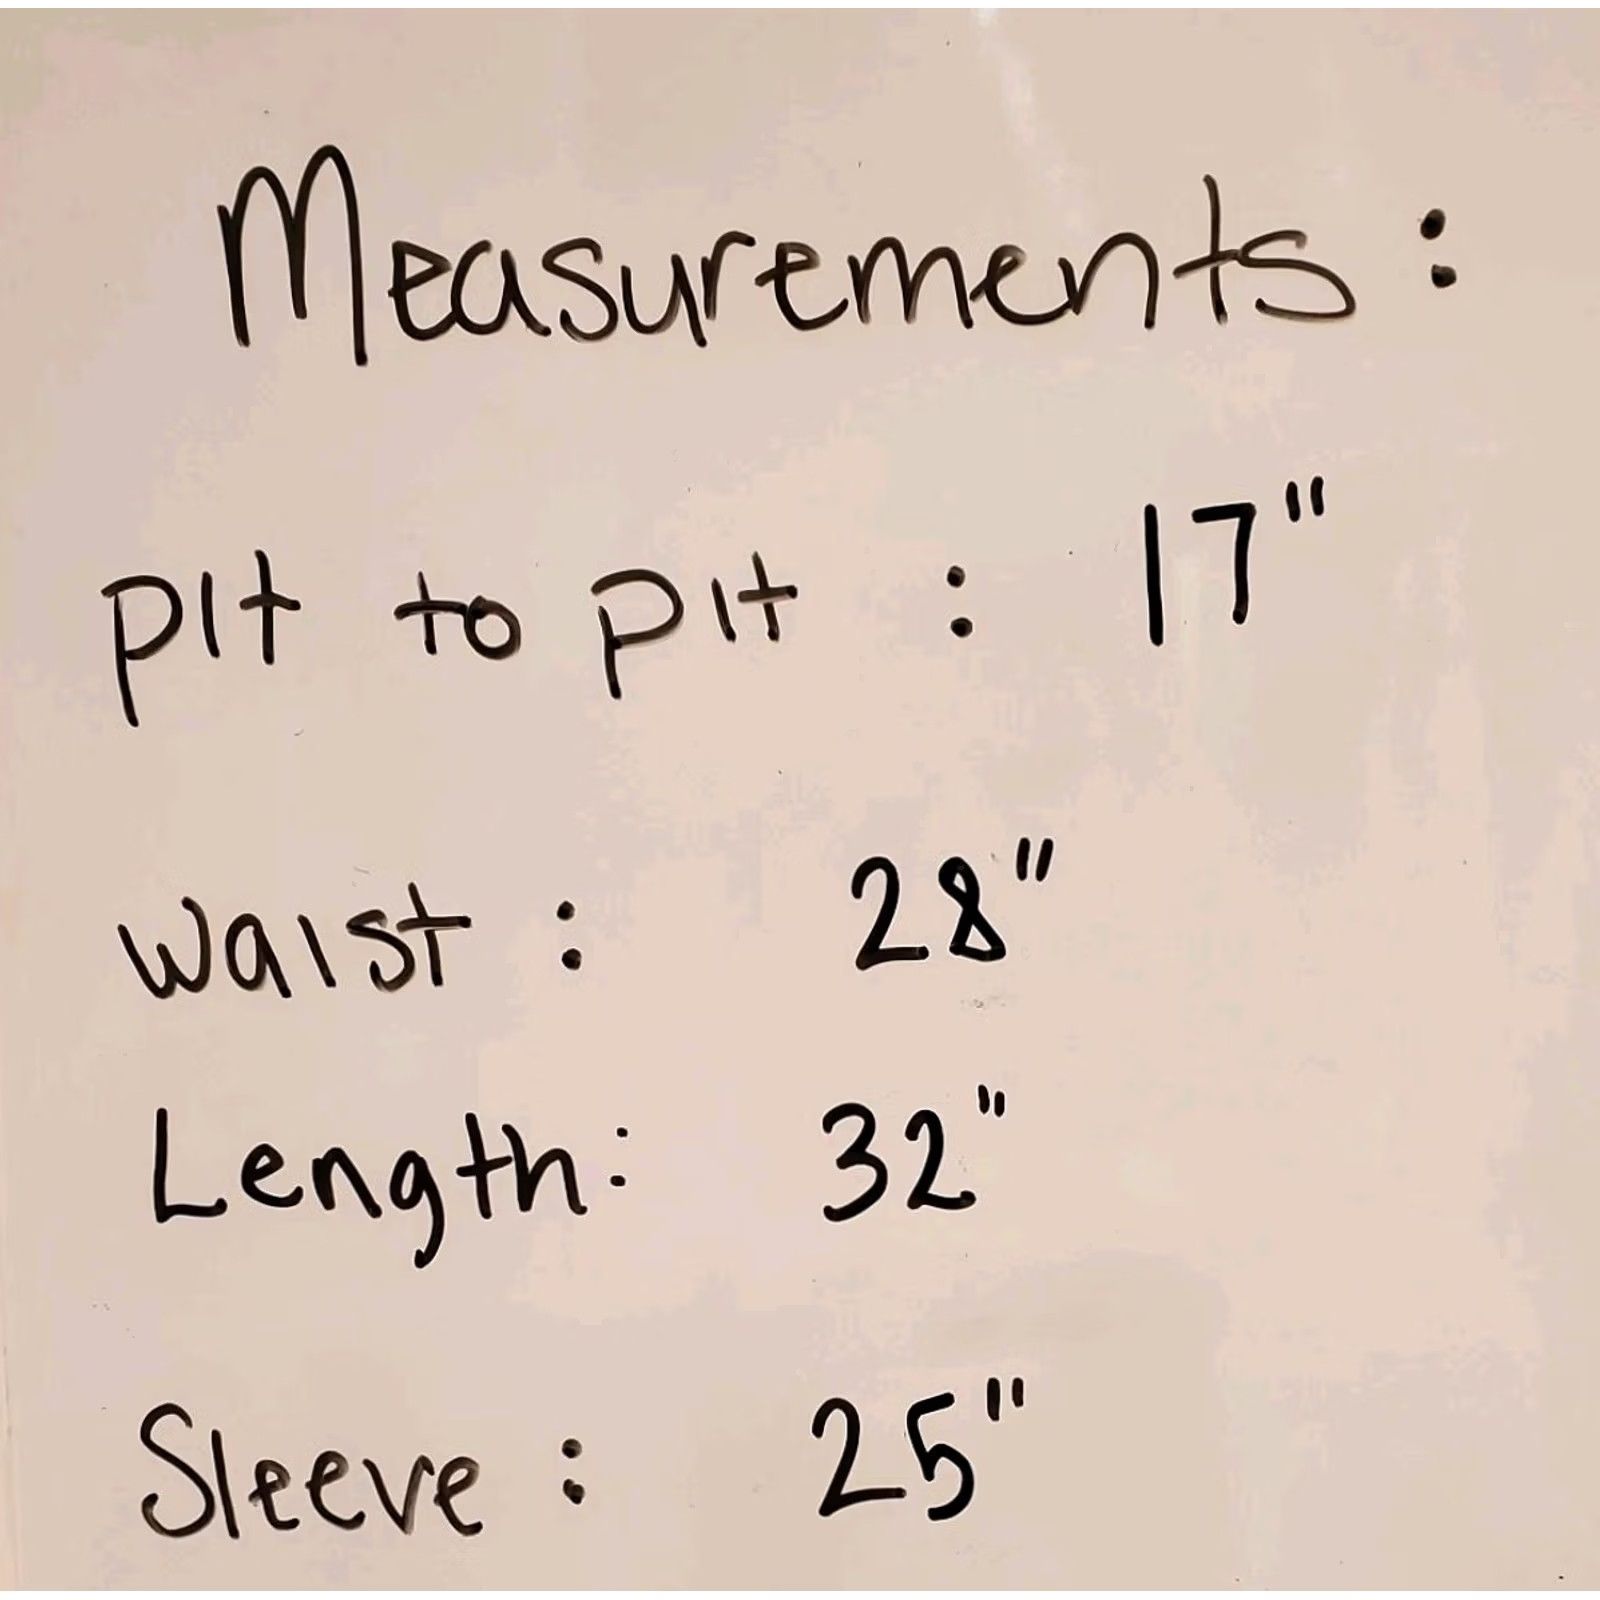 Measurements :
pit to pit : 17"
waist : 28"
Length: 32"
Sleeve : 25"